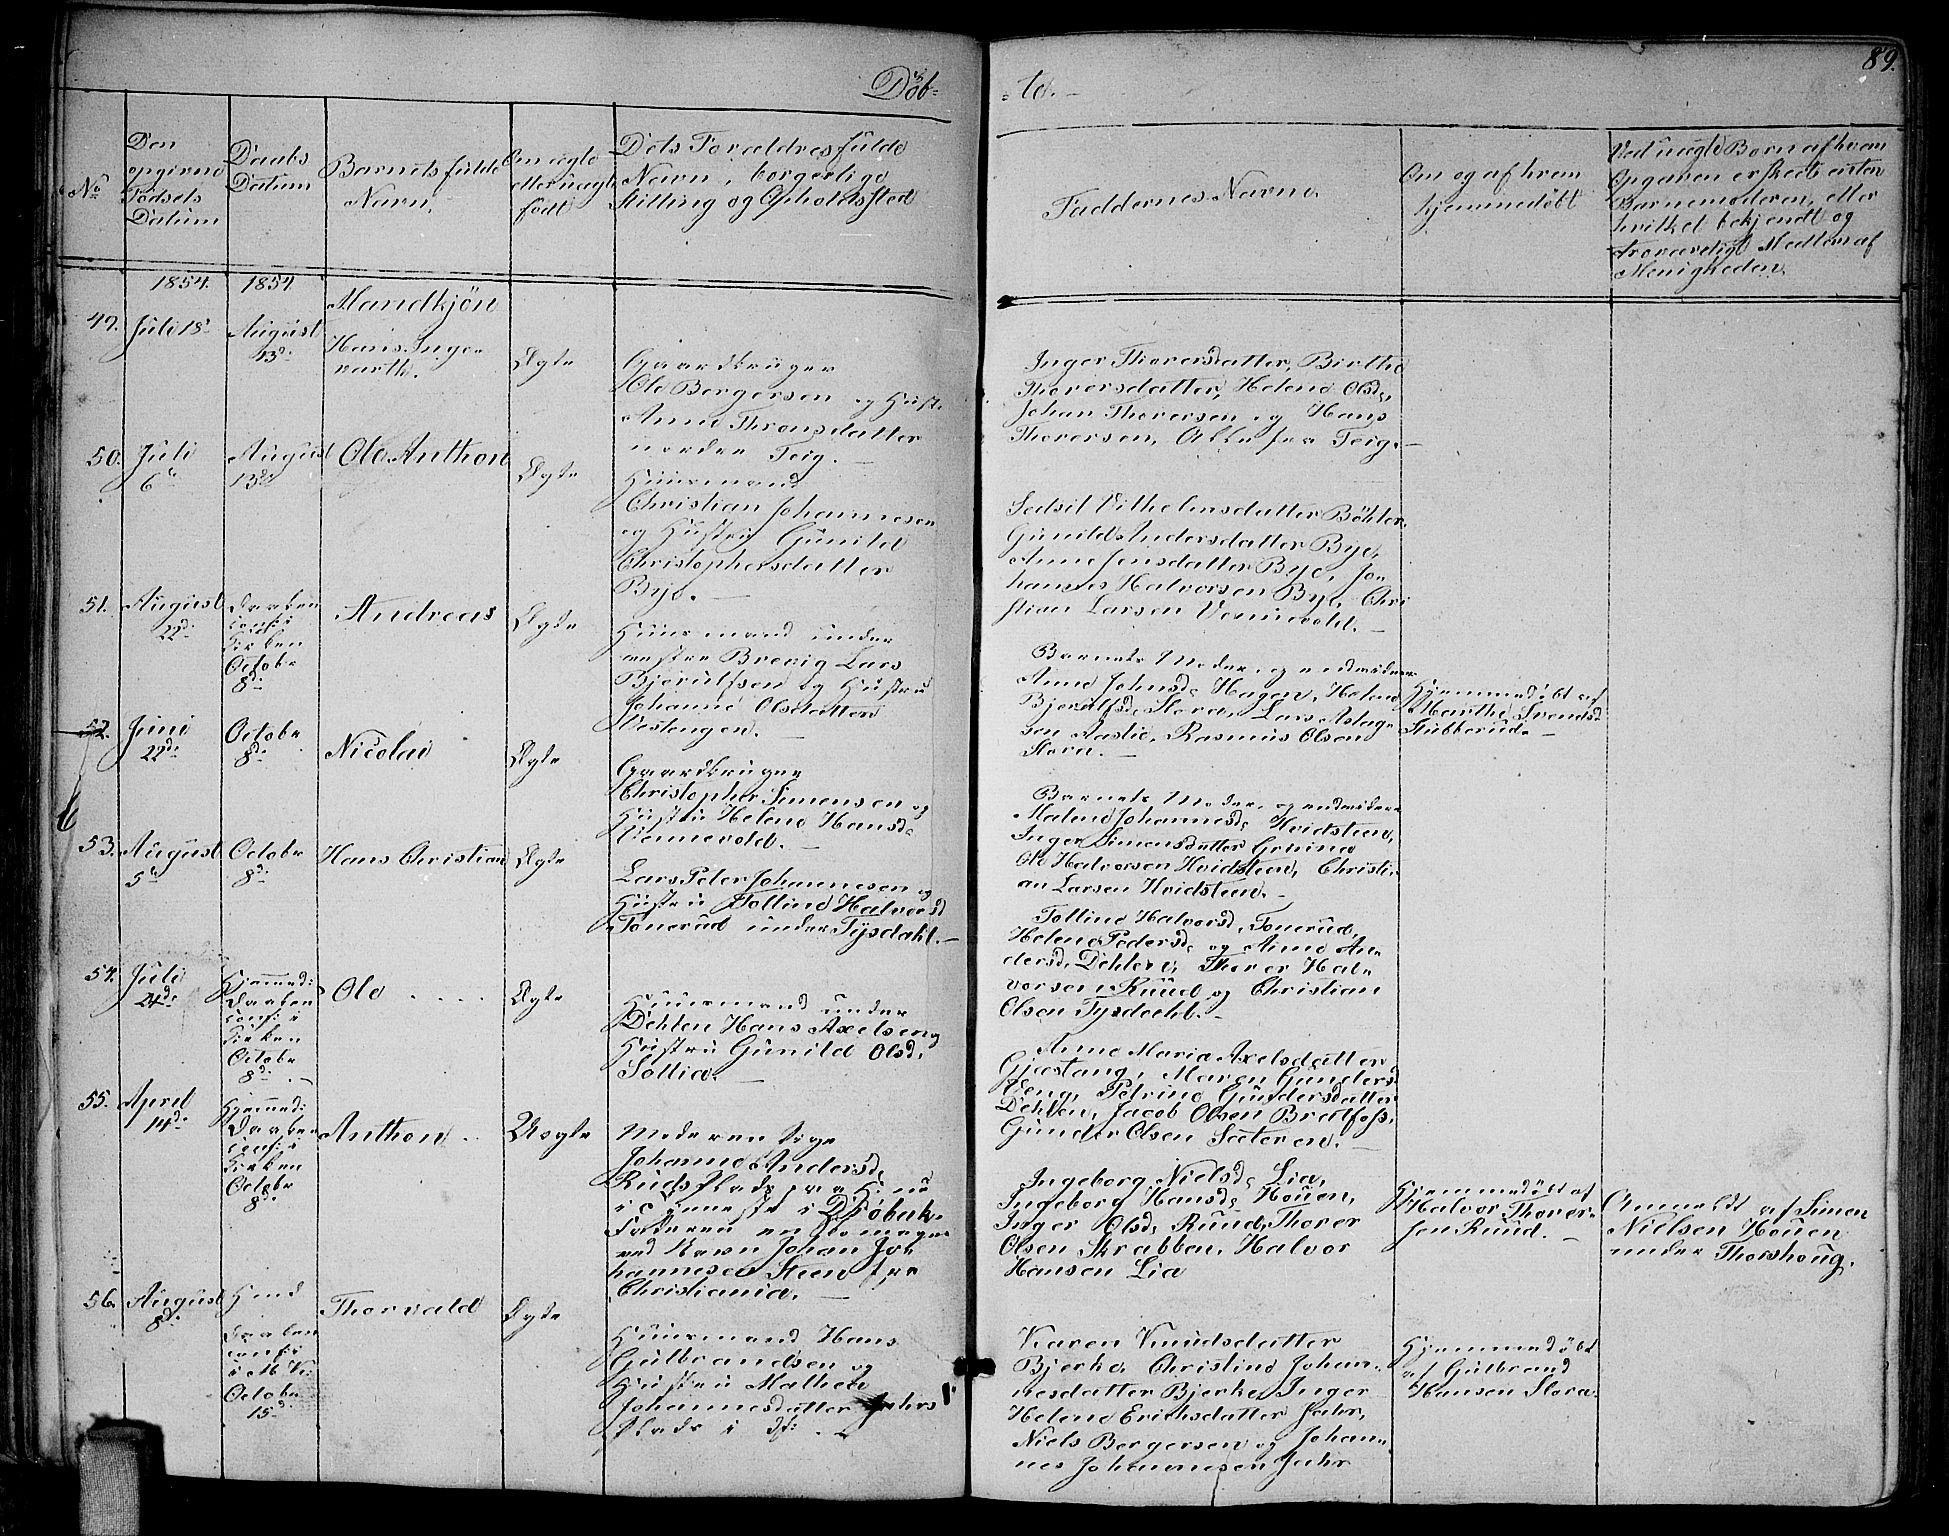 Døb-
-te.
89.
No
Den
opgivne
Fødsels
Datum
Daabs
Datum
Barnets fulde
Navn.
Om ægte
eller uægte
født
Dets Forældres fulde
Navn, borgerlige
Stilling og Opholdssted
Faddernes Navne.
Om og af hvem
hjemmedøbt
Ved uægte Børn af hvem
Opgaven er skeet enten
Barnemoderen, eller
hvilket bekjendt og
troværdigt Medlem af
Menigheden.
1854.
1854.
Mandkjøn
49.
Juli 18
August
13d:
Hans Inge-
varth.
Ægte
Gaardbruger
Ole Bergersen og Hust.
Anne Thronsdatter
nordre Teig.
Inger Thorersdatter, Birthe
Thorersdatter, Helene Olsd,
Johan Thorersen og Hans
Thorersen, Alle fra Teig.
50.
Juli
6
August
13d
Ole Anthon
Ægte
Huusmand
Christian Johannesen
og Hustru Gunild
Christophersdatter
Bye.
Sedsil Vilhelmsdatter Böhler,
Gunild Andersdatter Bye,
Anne Jensdatter Bye, Jo-
hannes Halvorsen Bye, Chri
stian Larsen Vennevold.
51.
August
22d:
Daaben
conf: i
Kirken
Octobr
8d:
Andreas
Ægte
Huusmand under
vestre Brevig Lars
Bjerulfsen og Hustru
Johanne Olsdatter
Vestengen.
Barnets Moder, og endvidere
Anne Johnsd, Hagen, Helene
Bjerulfsd, Slora, Lars Aslag-
sen Aaslie, Rasmus Olsen
Slora.
Hjemmedöbt af
Marthe Svendsd
Stubberud.
52.
Juni
22d:
Octobr
8d:
Nicolai
Ægte
Gaardbruger
Christopher Simensen og
Hustru Helene Hansd,
Vennevold.
Barnets Moder, og endvidere
Malene Johannesd, Hvidsteen,
Inger Simensdatter Grnind
Ole Halvorsen Hvidsteen, Christi-
an Larsen Hvidsteen.
53.
August
5
Octobr
8d:
Hans Christian
Ægte
Lars Peter Johannesen og
Hustru Tolline Halvorsd
Tonerud under Tysdahl.
Tolline Halvorsd, Tonerud,
Helene Pedersd, og Anne An-
dersd, Dehlen, Thorer Hal-
vorsen Ruud og Christian
Olsen Tysdahl.
54.
Juli
24d:
Hjemmed:
Daaben
conf: i
Kirken
Octobr
8d:
Ole . . . .
Ægte
Huusmand under
Dehlen Hans Axelsen og
Hustru Gunild Olsd,
Sollia.
Anne Maria Axelsdatter
Gjæstang, Maren Gundersd
Eeng, Petrine Gundersdatter
Dehlen, Jacob Olsen Bratfoss,
Gunder Olsen Sæteren.
55.
April
14d:
Hjemmed:
Daaben
conf: i
Kirken
Octobr
8d:
Anthon
Uægte
Moderen Pige
Johanne Andersd,
Rudsplads paa H: nu
i Tjeneste i Drøbak.
Faderen en Glomager
ved Navn Johan Jo-
hannesen Steen fra
Christiania.
Ingeborg Nielsd, Lia,
Ingeborg Hansd, Houen,
Inger Olsd, Ruud, Thorer
Olsen Skrabben, Halvor
Hansen Lia
Hjemmedöbt af
Halvor Thorer-
sen Ruud.
Anmeldt af Simen
Nielsen Houen
under Thorshoug.
56.
August
8d:
Hmd
Daaben
conf: i
i M Ki:
Octobr
15d
Thorvald
Ægte
Huusmand Hans
Gulbrandsen og
Hustru Mathea
Johannesdatter Jahrs
plads i df:
Karen Knudsdatter
Bjerke, Christine Johan-
nesdatter Bjerke, Inger
Helene Erichsdatter Jahr,
Niels Bergersen og Johan-
nes Johannesen Jahr
Hjemmedöbt
af Gulbrand
Hansen Slora.